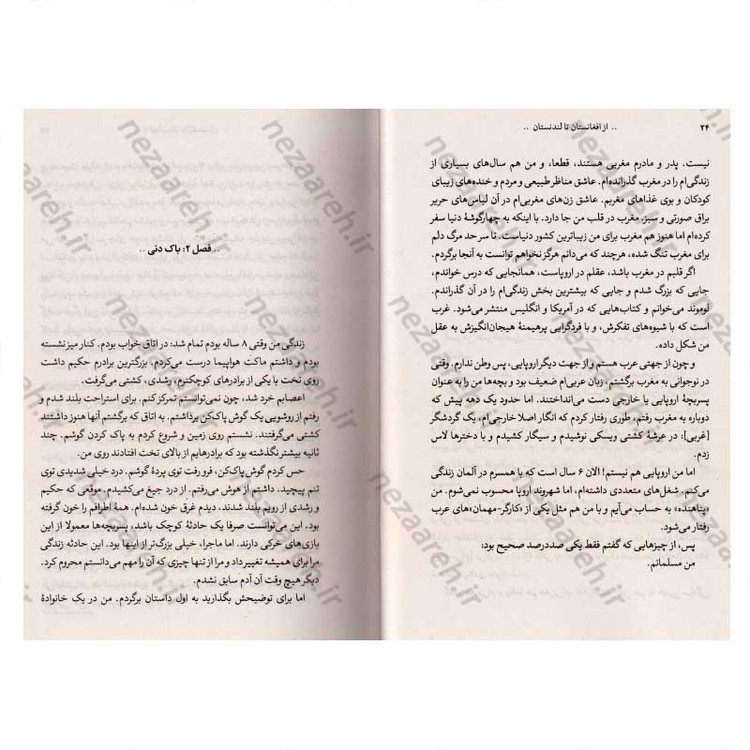 ۲۴
.. از افغانستان تا لندنستان ..
نیست. پدر و مادرم مغربی هستند، قطعا، و من هم سال‌های بسیاری از
زندگی‌ام را در مغرب گذرانده‌ام. عاشق مناظر طبیعی و مردم و خنده‌های زیبای
کودکان و بوی غذاهای مغربم. عاشق زن‌های مغربی‌ام در آن لباس‌های حریر
براق صورتی و سبز. مغرب در قلب من جا دارد. با اینکه به چهارگوشهٔ دنیا سفر
کرده‌ام اما هنوز هم مغرب برای من زیباترین کشور دنیاست. تا سر حد مرگ دلم
برای مغرب تنگ شده، هرچند که می‌دانم هرگز نخواهم توانست به آنجا برگردم.
اگر قلبم در مغرب باشد، عقلم در اروپاست، همانجایی که درس خواندم،
جایی که بزرگ شدم و جایی که بیشترین بخش زندگی‌ام را در آن گذراندم.
لوموند می‌خوانم و کتاب‌هایی که در آمریکا و انگلیس منتشر می‌شود. غرب
است که با شیوه‌های تفکرش، و با فردگرایی پرهیمنهٔ هیجان‌انگیزش به عقل
من شکل داده.
و چون از جهتی عرب هستم و از جهت دیگر اروپایی، پس وطن ندارم. وقتی
در نوجوانی به مغرب برگشتم، زبان عربی‌ام ضعیف بود و بچه‌ها من را به عنوان
پسربچهٔ اروپایی یا خارجی دست می‌انداختند. اما حدود یک دهه پیش که
دوباره به مغرب رفتم، طوری رفتار کردم که انگار اصلا خارجی‌ام، یک گردشگر
[غربی]: در عرشهٔ کشتی ویسکی نوشیدم و سیگار کشیدم و با دخترها لاس
زدم.
اما من اروپایی هم نیستم! الان ۶ سال است که با همسرم در آلمان زندگی
می‌کنم. شغل‌های متعددی داشته‌ام، اما شهروند اروپا محسوب نمی‌شوم. من
«پناهنده» به حساب می‌آیم و با من هم مثل یکی از «کارگر-مهمان»های عرب
رفتار می‌شود.
پس، از چیزهایی که گفتم فقط یکی صددرصد صحیح بود:
من مسلمانم.
.. فصل ۲: باک دنی ..
زندگی من وقتی ۸ ساله بودم تمام شد: در اتاق خواب بودم. کنار میز نشسته
بودم و داشتم ماکت هواپیما درست می‌کردم. بزرگترین برادرم حکیم داشت
روی تخت با یکی از برادرهای کوچکترم، رشدی، کشتی می‌گرفت.
اعصابم خرد شد، چون نمی‌توانستم تمرکز کنم. برای استراحت بلند شدم و
رفتم از روشویی یک گوش پاک‌کن برداشتم. به اتاق که برگشتم آنها هنوز داشتند
کشتی می‌گرفتند. نشستم روی زمین و شروع کردم به پاک کردن گوشم. چند
ثانیه بیشتر نگذشته بود که برادرهایم از بالای تخت افتادند روی من.
حس کردم گوش پاک‌کن، فرو رفت توی پردهٔ گوشم. درد خیلی شدیدی توی
تنم پیچید. داشتم از هوش می‌رفتم. از درد جیغ می‌کشیدم. موقعی که حکیم
و رشدی از رویم بلند شدند، دیدم غرق خون شده‌ام. همهٔ اطرافم را خون گرفته
بود. این می‌توانست صرفا یک حادثهٔ کوچک باشد، پسربچه‌ها معمولا از این
بازی‌های خرکی دارند. اما ماجرا، خیلی بزرگ‌تر از اینها بود. این حادثه زندگی
مرا برای همیشه تغییر داد و مرا از تنها چیزی که آن را مهم می‌دانستم محروم کرد.
دیگر هیچ وقت آن آدم سابق نشدم.
اما برای توضیحش بگذارید به اول داستان برگردم. من در یک خانوادهٔ
nezaareh.ir
nezaareh.ir
nezaareh.ir
nezaareh.ir
nezaareh.ir
nezaareh.ir